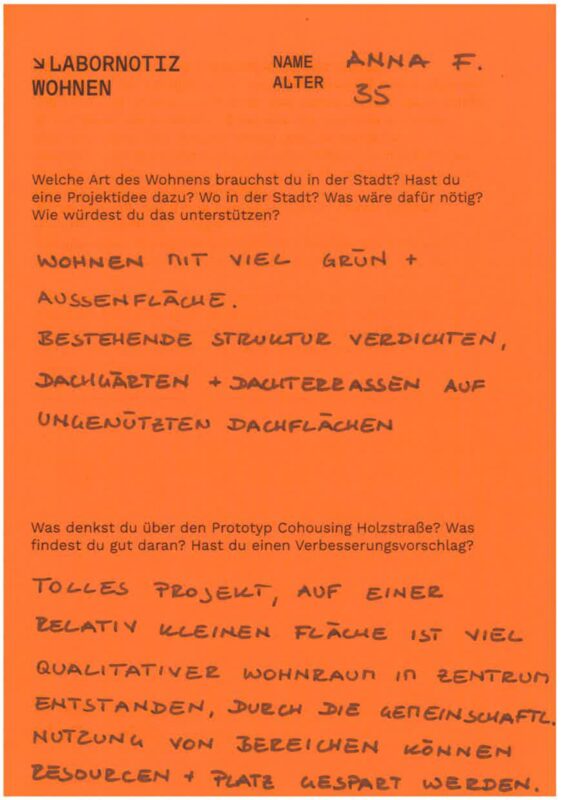 ↘LABORNOTIZ
WOHNEN
NAME ANNA F.
ALTER 35
Welche Art des Wohnens brauchst du in der Stadt? Hast du
eine Projektidee dazu? Wo in der Stadt? Was wäre dafür nötig?
Wie würdest du das unterstützen?
WOHNEN MIT VIEL GRÜN +
AUSSENFLÄCHE.
BESTEHENDE STRUKTUR VERDICHTEN,
DACHGÄRTEN + DACHTERRASSEN AUF
UNGENÜTZTEN DACHFLÄCHEN
Was denkst du über den Prototyp Cohousing Holzstraße? Was
findest du gut daran? Hast du einen Verbesserungsvorschlag?
TOLLES PROJEKT, AUF EINER
RELATIV KLEINEN FLÄCHE IST VIEL
QUALITATIVER WOHNRAUM IM ZENTRUM
ENTSTANDEN, DURCH DIE GEMEINSCHAFTL.
NUTZUNG VON BEREICHEN KÖNNEN
RESOURCEN + PLATZ GESPART WERDEN.